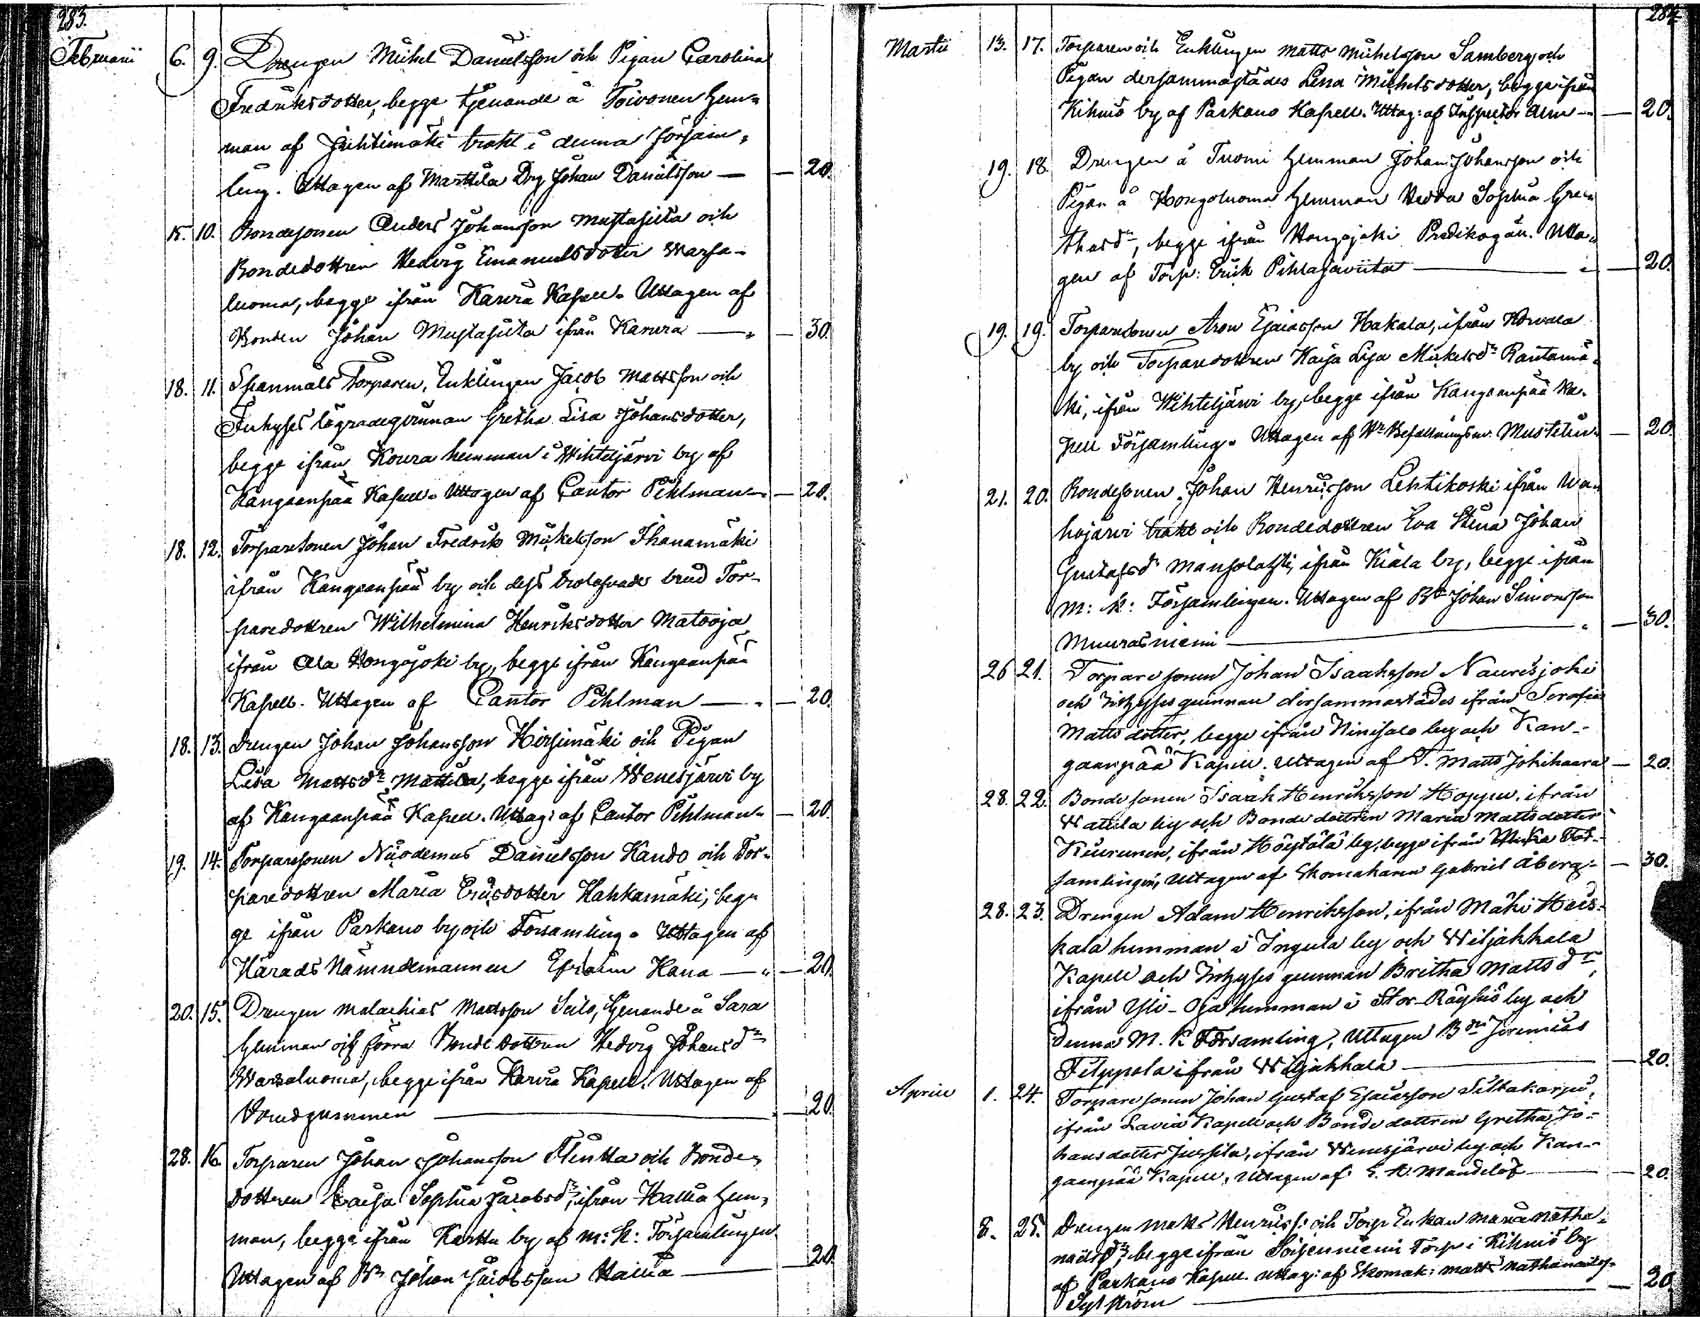 283.
Februarii 6. 9. Drengen Michel Danielsson och Pigan Carolina
Fredriksdotter, begge tjenande å Toivonen hem-
man af Jyhtimäki trakt i denna försam-
ling. Uttagen af Marttila Drg Johan Danielsson — — 20.
15. 10. Bondesonen Anders Johansson Mustajuta och
Bondedottren Hedvig Emanuelsdotter Warsa-
luoma, begge ifrån Karvia Kapell. Uttagen af
Bonden Johan Mustajuta ifrån Karvia — — 30.
18. 11. Spanmåls Torparen, Enklingen Jacob Mattsson och
Inhyses lägradeqvinnan Gretha Lisa Johansdotter,
begge ifrån Koura hemman i Wihteljärvi by af
Kangaanpää Kapell. Uttagen af Cantor Pihlman — — 20.
18. 12. Torparesonen Johan Fredrik Mickelsson Ihanamäki
ifrån Kangaanpää by och dess trolofvade brud Tor-
paredottren Wilhelmina Henriksdotter Matooja
ifrån Ala Hongojoki by, begge ifrån Kangaanpää
Kapell. Uttagen af Cantor Pihlman — — 20.
18. 13. Drengen Johan Johansson Hirsimäki och Pigan
Lisa Mattsdr Mattila, begge ifrån Wenesjärvi by
af Kangaanpää Kapell. Uttag: af Cantor Pihlman — 20.
19. 14. Torparesonen Nicodemus Danielsson Kando och Tor-
paredottren Maria Ericsdotter Hahkamäki, beg-
ge ifrån Parkano by och Församling. Uttagen af
Härads Nämndemannen Efraim Hana — — 20.
20. 15. Drengen Malachias Mattsson Sulo, tjenande å Sara
hemman och förra Bonde dottren Hedvig Johansdr
Warsaluoma, begge ifrån Karvia Kapell. Uttagen af
Brudgummen — — 20.
28. 16. Torparen Johan Johansson Flintta och Bonde-
dottren Caisa Sophia Jacobsdr, ifrån Hallia hem-
man, begge ifrån Karttu by af M: K: Församlingen.
Uttagen af Bn Johan Jacobsson Hallia — 20.
284.
Martii 13. 17. Torparen och Enklingen Matts Michelsson Samberg och
Pigan dersammastädes Lena Michelsdotter, begge ifrån
Kihniö by af Parkano Kapell. Uttag: af Inspector Alm — — 20.
19. 18. Drengen å Tuomi hemman Johan Johansson och
Pigan å Kongoluoma hemman Hedda Sophia Gre-
thasdr, begge ifrån Hongojoki Predikogäll. Utta-
gen af Torp: Erick Pihlajaviita — — 20.
19. 19. Torparesonen Aron Esaiasson Hakala, ifrån Korvala
by och Torparedottren Kaisa Lisa Mickelsdr Rantamä-
ki, ifrån Wihteljärvi by, begge ifrån Kangaanpää Ka-
pell Församling. Uttagen af Wr Befallningsm. Mustelin — 20.
21. 20. Bondesonen Johan Henricsson Lehtikoski ifrån Wa-
hojärvi trakt och Bondedottren Eva Stina Johan
Gustafsdr Mansolahti ifrån Kiala by, begge ifrån
M: K: Församlingen. Uttagen af Bn Johan Simonsson
Muurasniemi — — 30.
26 21. Torpare sonen Johan Isaaksson Naurisjoki
och Inhysesqvinnan dersammastädes ifrån Serafia
Matts dotter, begge ifrån Niinisalo by och Kan-
gaanpää Kapell. Uttagen af T. Matts Jokihaara — 20.
28. 22. Bonde sonen Isaak Henriksson Hoppu, ifrån
Watula by och Bonde dottren Maria Mattsdotter
Kiurunen, ifrån Höytölä by, begge ifrån För-
samlingen, Uttagen af Skomakaren Gabriel Åberg — 30.
28. 23. Drengen Adam Henriksson, ifrån Mäki Heis-
kala hemman i Ingula by och Wiljakkala
Kapell och Inhyses qvinnan Britha Mattsdr,
ifrån Yli-Oja hemman i Stor-Röyhiö by och
denna M. K Församling, Uttagen Bden Jeremias
Filppola ifrån Wiljakkala — 20.
Aprill 1. 24. Torpare sonen Johan Gustaf Esaiasson Siltakorpi,
ifrån Lavia Kapell och Bonde dottren Gretha Jo-
hans dotter Jussila, ifrån Wenesjärvi by och Kan-
gaanpää Kapell, Uttagen af G. A. Mandelöf — 20.
8. 25. Drengen Matts Henricss: och Torp Enkan Maria Natha-
naelsdr, begge ifrån Soisenniemi Torp i Kihniö by
af Parkano Kapell. Uttag: af Skomak: Matts Nathanaels-
Sylström — 20.